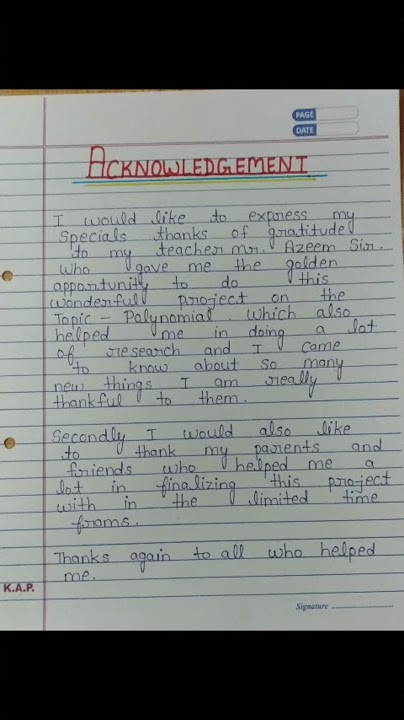 PAGE
DATE
ACKNOWLEDGEMENT
I would like to express my
Specials thanks of gratitude
to my teacher mr. Azeem Sir.
Who gave me the golden
apportunity to do this
wonderful project on the
Topic - Polynomial. Which also
helped me in doing a lot
of research and I came
to know about so many
new things I am really
thankful to them.
Secondly I would also like
to thank my parents and
friends who helped me a
lot in finalizing this project
with in the limited time
frams.
Thanks again to all who helped
me.
K.A.P.
Signature